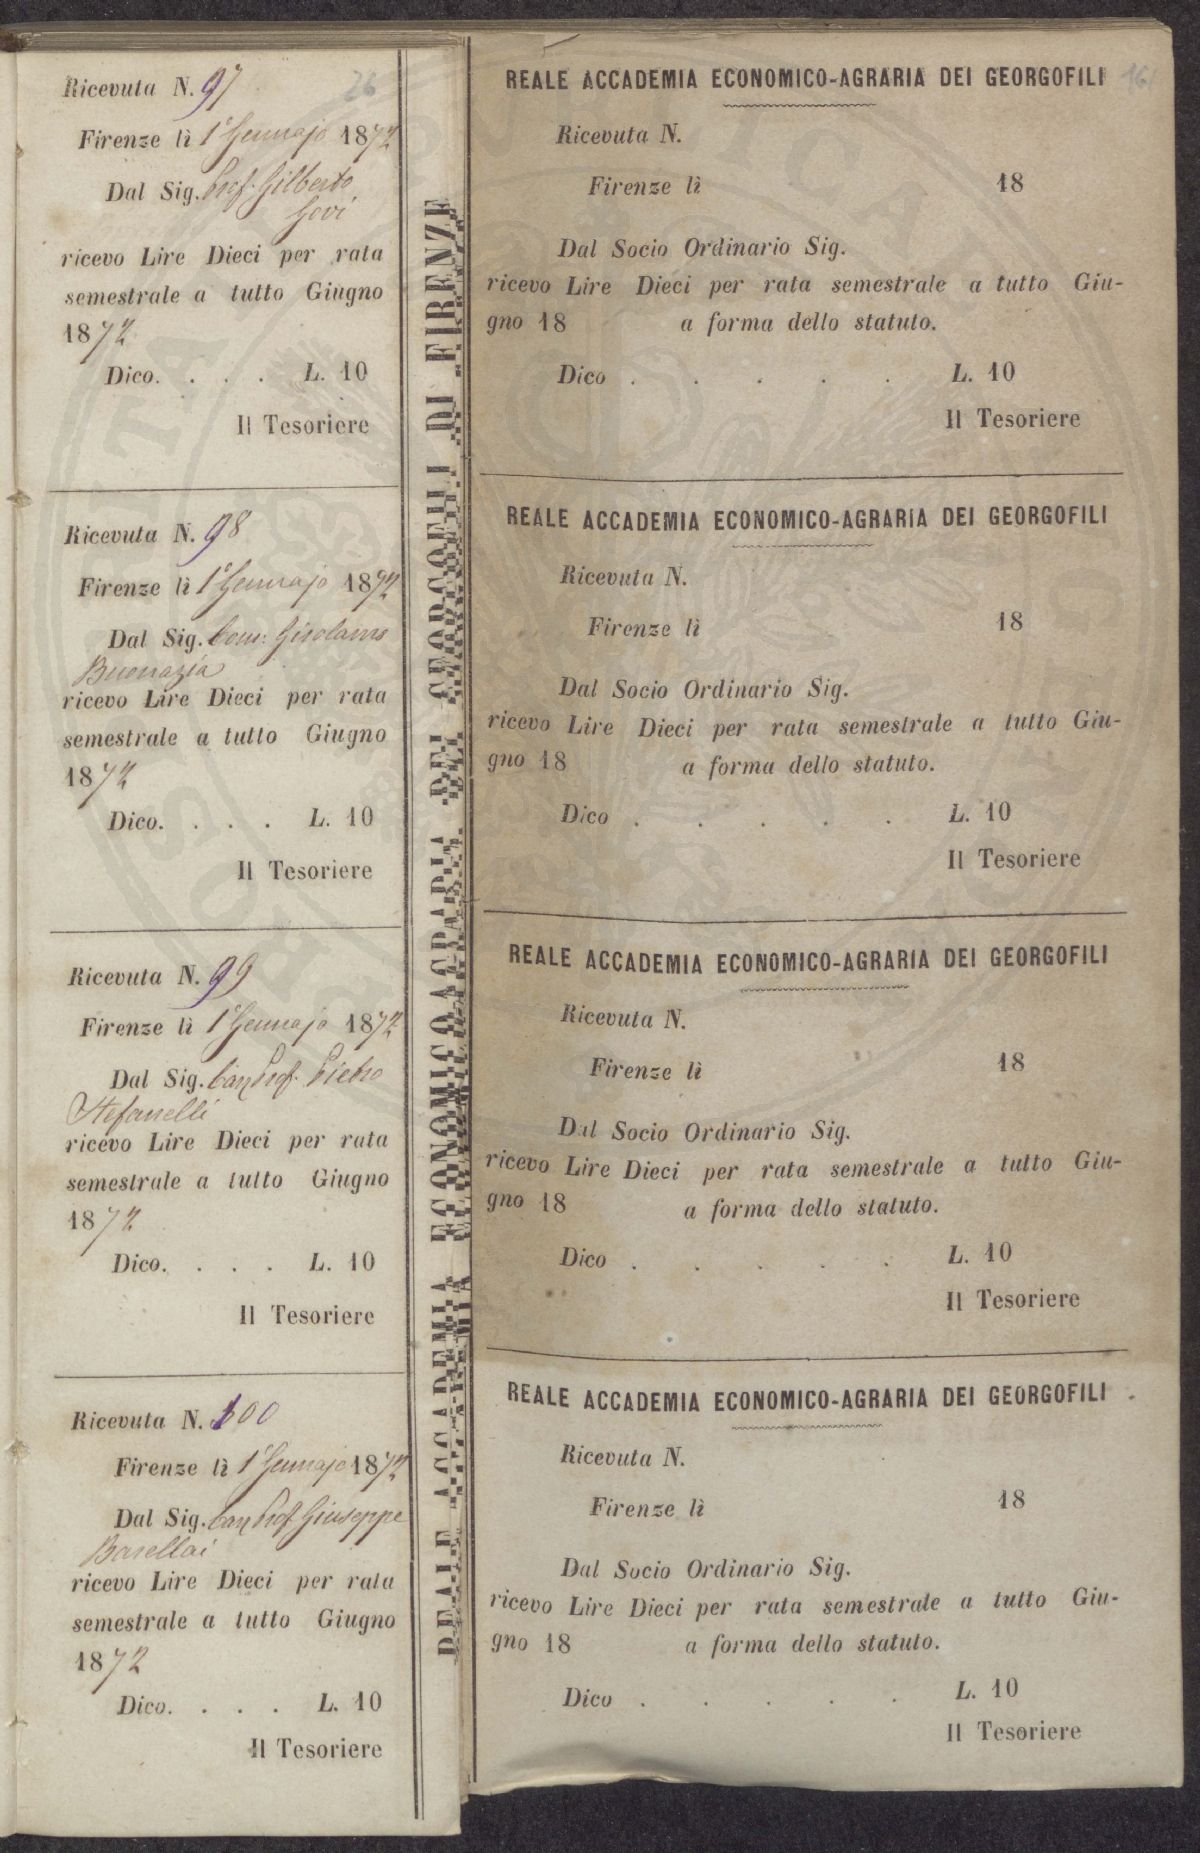 Ricevuta N. 97
26
Firenze lì 1° Gennajo 1872
Dal Sig. Prof. Gilberto
Govi
ricevo Lire Dieci per rata
semestrale a tutto Giugno
1872
Dico. . . . L. 10
Il Tesoriere
Ricevuta N. 98
Firenze lì 1° Gennajo 1872
Dal Sig. Com: Girolamo
Buonazia
ricevo Lire Dieci per rata
semestrale a tutto Giugno
1872
Dico. . . . L. 10
Il Tesoriere
Ricevuta N. 99
Firenze lì 1° Gennajo 1872
Dal Sig. Cav. Prof. Pietro
Stefanelli
ricevo Lire Dieci per rata
semestrale a tutto Giugno
1872
Dico. . . . L. 10
Il Tesoriere
Ricevuta N. 100
Firenze lì 1° Gennajo 1872
Dal Sig. Cav. Prof. Giuseppe
Barellai
ricevo Lire Dieci per rata
semestrale a tutto Giugno
1872
Dico. . . . L. 10
Il Tesoriere
REALE ACCADEMIA ECONOMICO AGRARIA DEI GEORGOFILI DI FIRENZE
REALE ACCADEMIA ECONOMICO-AGRARIA DEI GEORGOFILI
161
Ricevuta N.
Firenze lì 18
Dal Socio Ordinario Sig.
ricevo Lire Dieci per rata semestrale a tutto Giu-
gno 18 a forma dello statuto.
Dico . . . . . L. 10
Il Tesoriere
REALE ACCADEMIA ECONOMICO-AGRARIA DEI GEORGOFILI
Ricevuta N.
Firenze lì 18
Dal Socio Ordinario Sig.
ricevo Lire Dieci per rata semestrale a tutto Giu-
gno 18 a forma dello statuto.
Dico . . . . . L. 10
Il Tesoriere
REALE ACCADEMIA ECONOMICO-AGRARIA DEI GEORGOFILI
Ricevuta N.
Firenze lì 18
Dal Socio Ordinario Sig.
ricevo Lire Dieci per rata semestrale a tutto Giu-
gno 18 a forma dello statuto.
Dico . . . . . L. 10
Il Tesoriere
REALE ACCADEMIA ECONOMICO-AGRARIA DEI GEORGOFILI
Ricevuta N.
Firenze lì 18
Dal Socio Ordinario Sig.
ricevo Lire Dieci per rata semestrale a tutto Giu-
gno 18 a forma dello statuto.
Dico . . . . . L. 10
Il Tesoriere